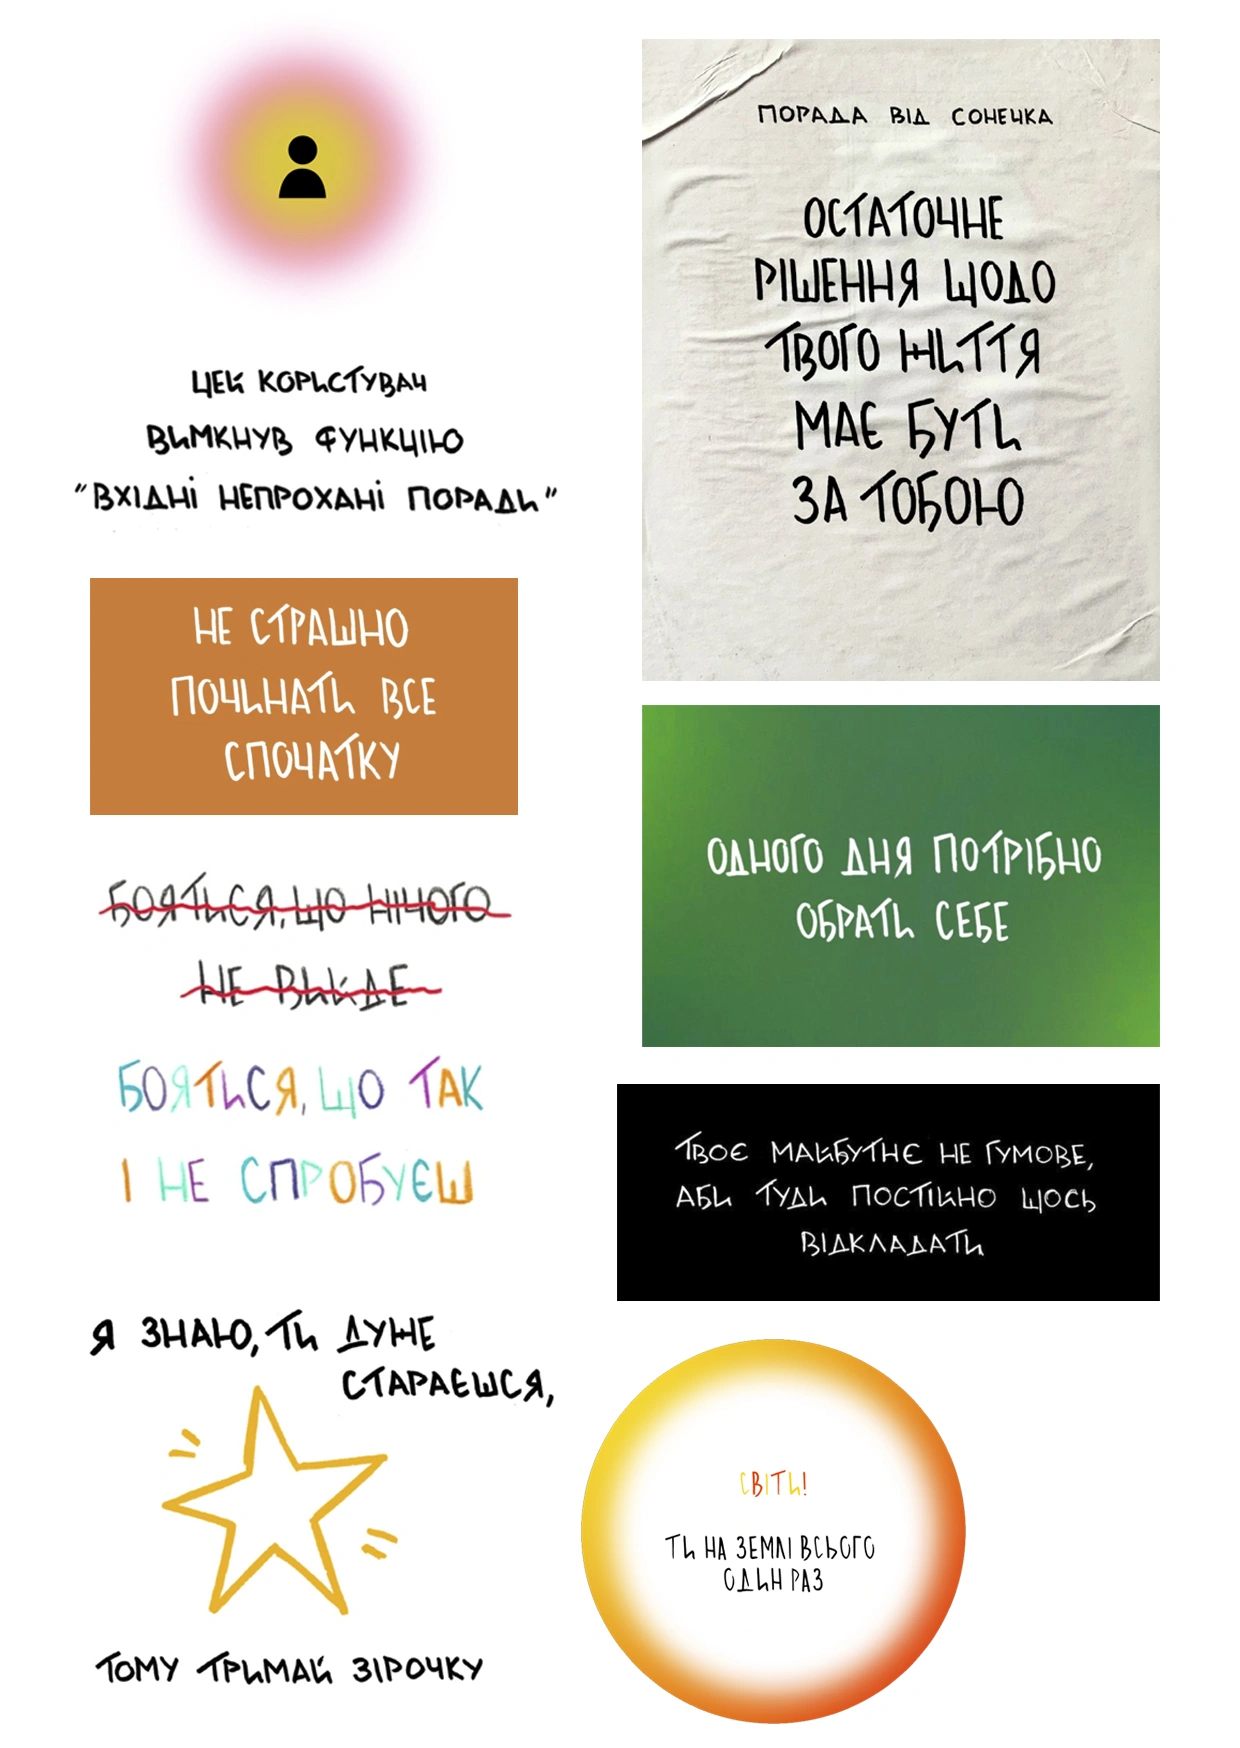 ЦЕЙ КОРИСТУВАЧ
ВИМКНУВ ФУНКЦІЮ
"ВХІДНІ НЕПРОХАНІ ПОРАДИ"
НЕ СТРАШНО
ПОЧИНАТИ ВСЕ
СПОЧАТКУ
БОЯТИСЯ, ЩО НІЧОГО
НЕ ВИЙДЕ
БОЯТИСЯ, ЩО ТАК
І НЕ СПРОБУЄШ
Я ЗНАЮ, ТИ ДУЖЕ
СТАРАЄШСЯ,
ТОМУ ТРИМАЙ ЗІРОЧКУ
ПОРАДА ВІД СОНЕЧКА
ОСТАТОЧНЕ
РІШЕННЯ ЩОДО
ТВОГО ЖИТТЯ
МАЄ БУТИ
ЗА ТОБОЮ
ОДНОГО ДНЯ ПОТРІБНО
ОБРАТИ СЕБЕ
ТВОЄ МАЙБУТНЄ НЕ ГУМОВЕ,
АБИ ТУДИ ПОСТІЙНО ЩОСЬ
ВІДКЛАДАТИ
СВІТИ!
ТИ НА ЗЕМЛІ ВСЬОГО
ОДИН РАЗ